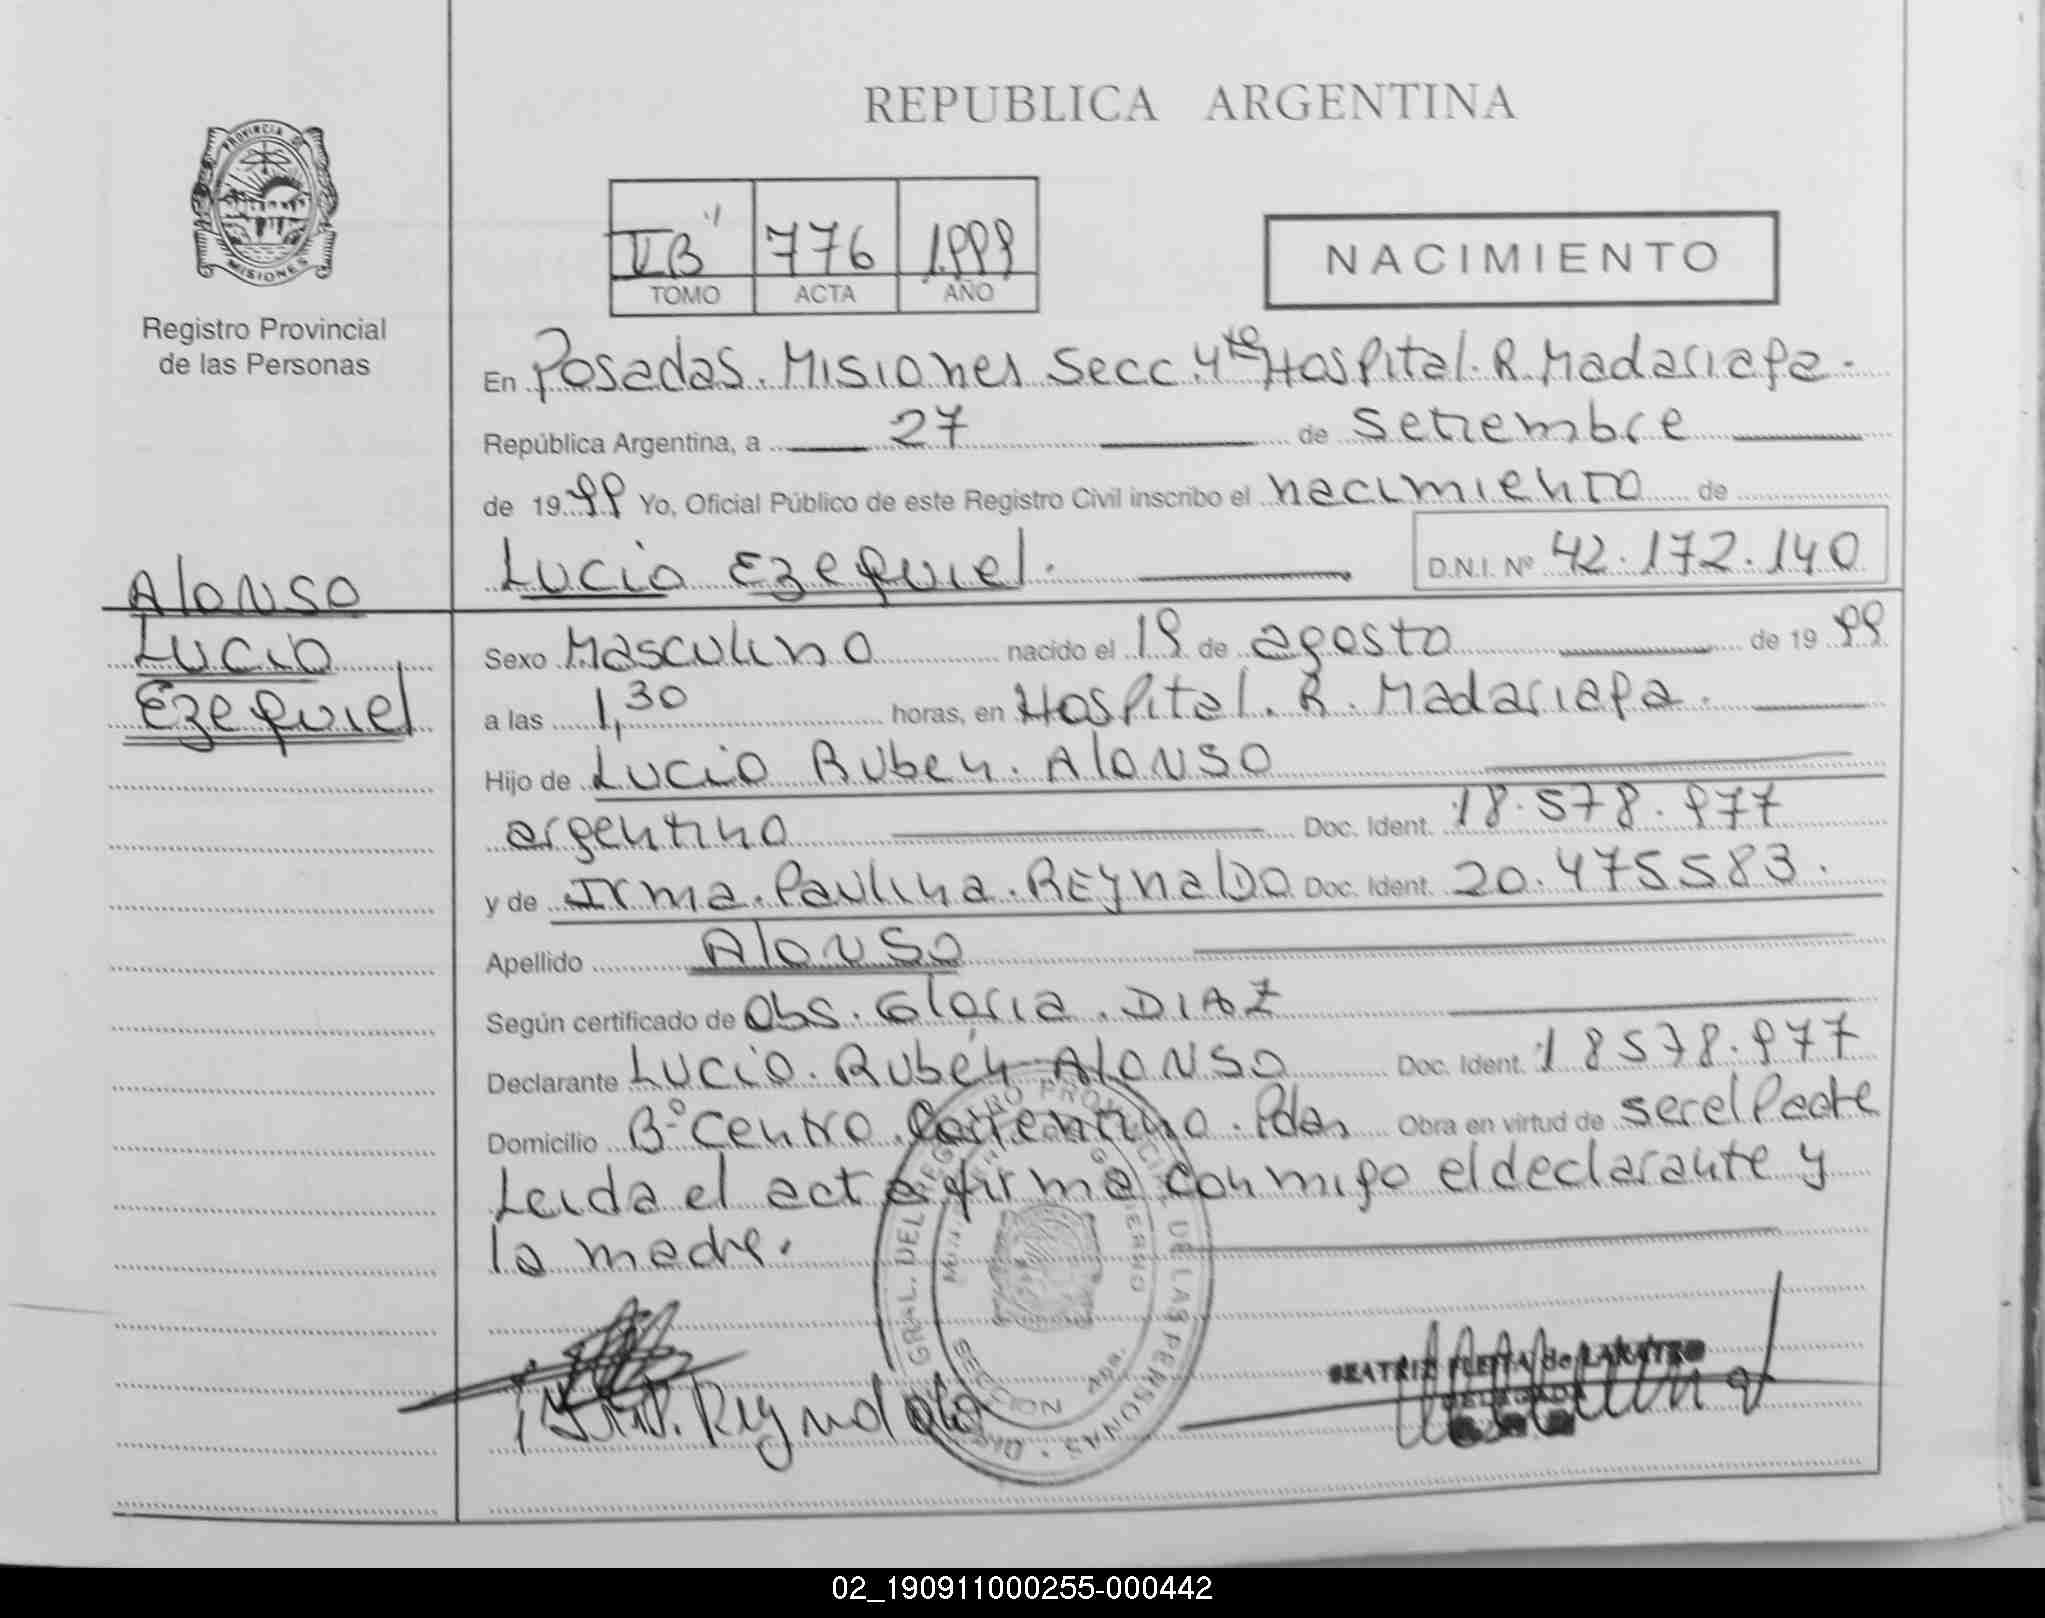 REPUBLICA ARGENTINA
PROVINCIA DE
MISIONES
Registro Provincial
de las Personas
776 1.999
TOMO ACTA AÑO
NACIMIENTO
En Posadas. Misiones Secc. 4ta Hospital. R. Madariaga.
República Argentina, a 27 de setiembre
de 19 99 Yo, Oficial Público de este Registro Civil inscribo el nacimiento de
Lucio Ezequiel. D.N.I. Nº 42.172.140
Alonso
Lucio
Ezequiel
Sexo Masculino nacido el 19 de agosto de 19 99
a las 1,30 horas, en Hospital. R. Madariaga.
Hijo de Lucio Ruben. Alonso
argentino Doc. Ident. 18.578.977
y de Irma. Paulina. Reynaldo Doc. Ident. 20.475583.
Apellido Alonso
Según certificado de Obs. Gloria. DIAZ
Declarante Lucio. Rubén Alonso Doc. Ident. 18578.977
Domicilio B° Centro Correntino. Pdas Obra en virtud de ser el Padre
Leida el acta firma conmigo el declarante y
la madre.
DIR. GRAL. DEL REGISTRO PROVINCIAL DE LAS PERSONAS
GOBIERNO
SECCION 4ta.
Reynaldo
BEATRIZ FLEITA de
DELEGADA
02_190911000255-000442